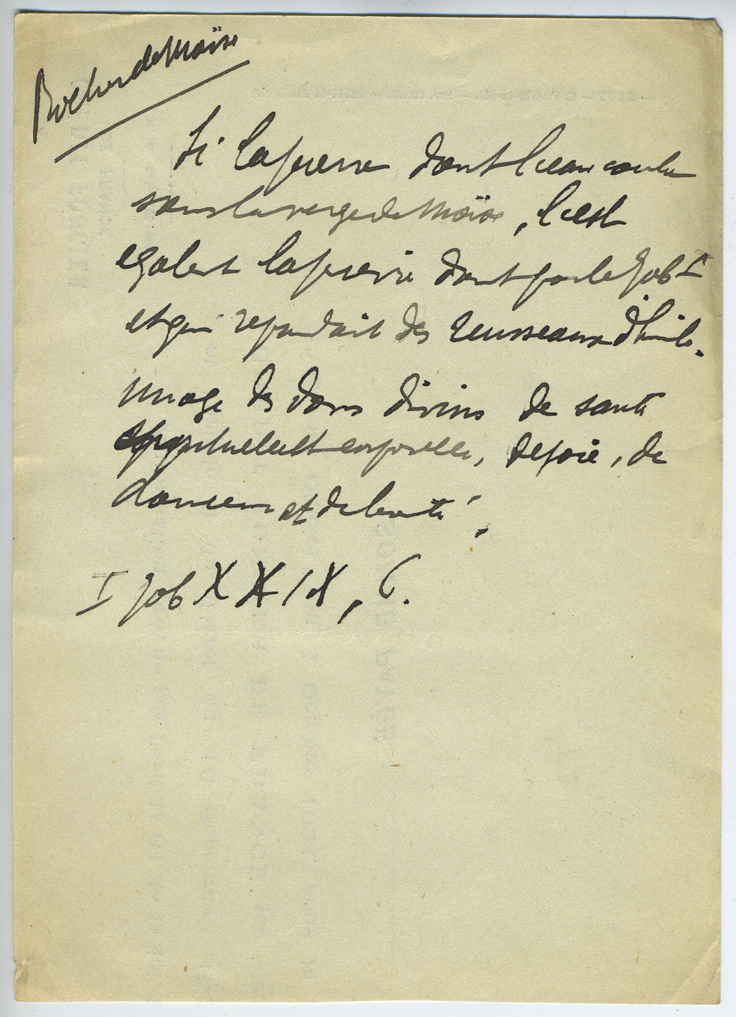 Rocher de Moïse
Si la pierre dont l'eau coula
sous la verge de Moïse, c'est
egalent la pierre dont parle Job I
et qui repandait des ruisseaux d'huile.
image des dons divins de santé
spirituelle et corporelle, de joie, de
douceur et de bonté.
I Job XXIX, 6.